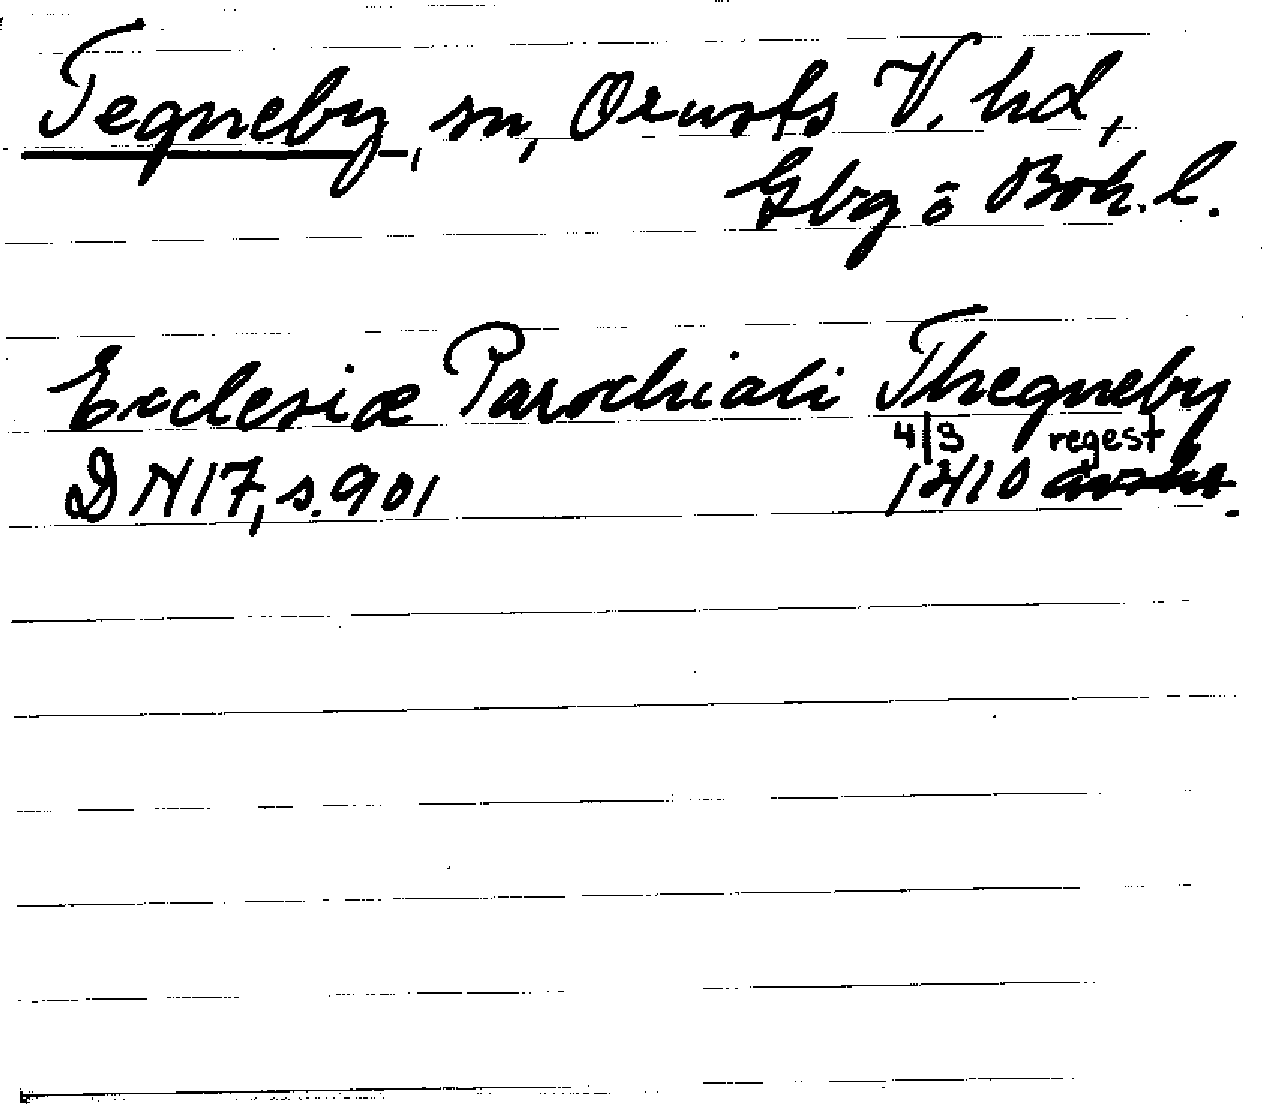 Tegneby, sn, Orusts V. hd,
Gbg o Boh. l.
Ecclesiæ Parochiali Thegneby
4/3 regest
DN 17, s. 901 1210 avskr.